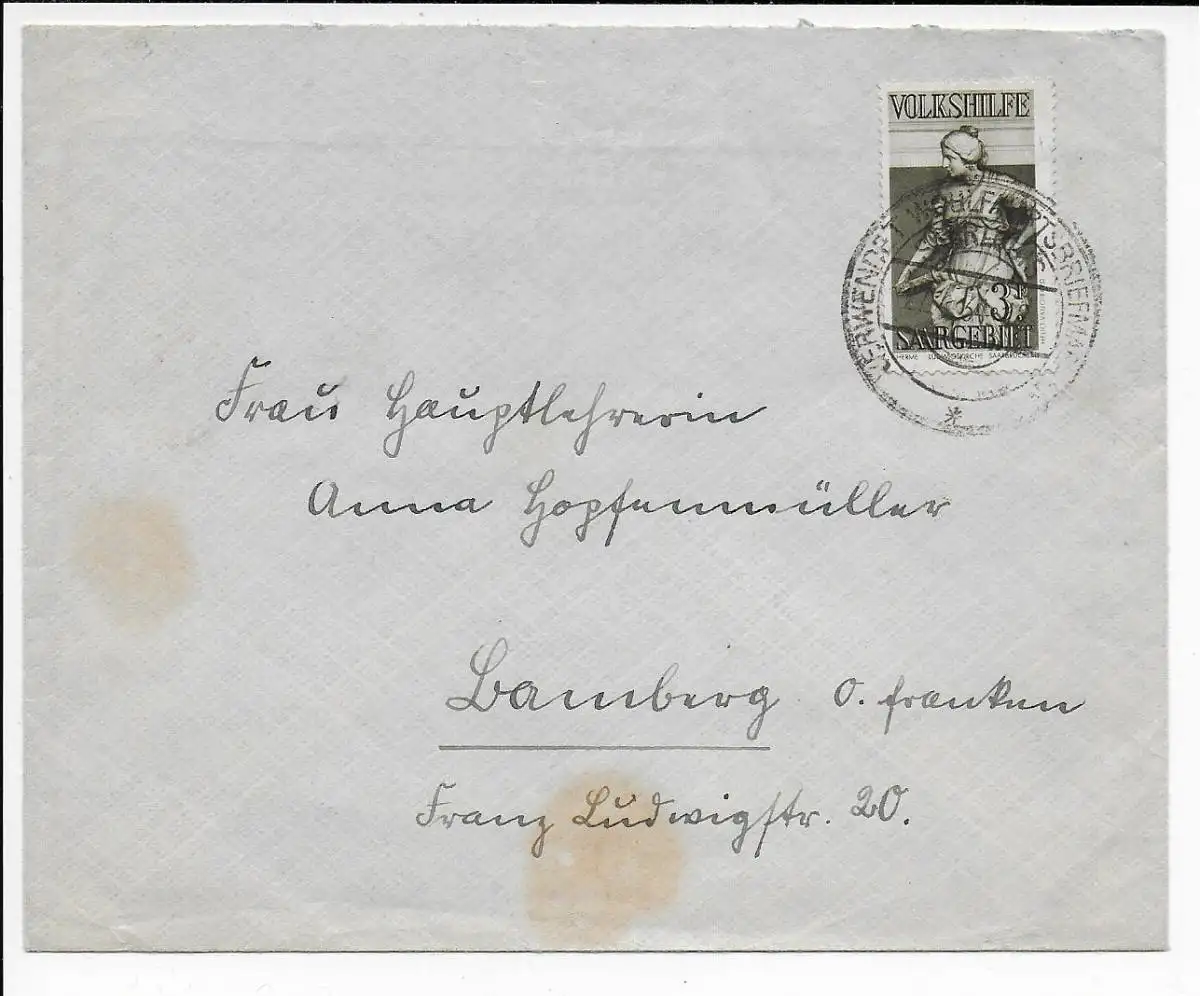 VOLKSHILFE
3 Fr
SAARGEBIET
HERME LUDWIGSKIRCHE SAARBRÜCKEN
VERWENDET WOHLFAHRTSBRIEFMARKEN
*
Frau Hauptlehrerin
Anna Hopfenmüller
Bamberg O.franken
Franz Ludwigstr. 20.